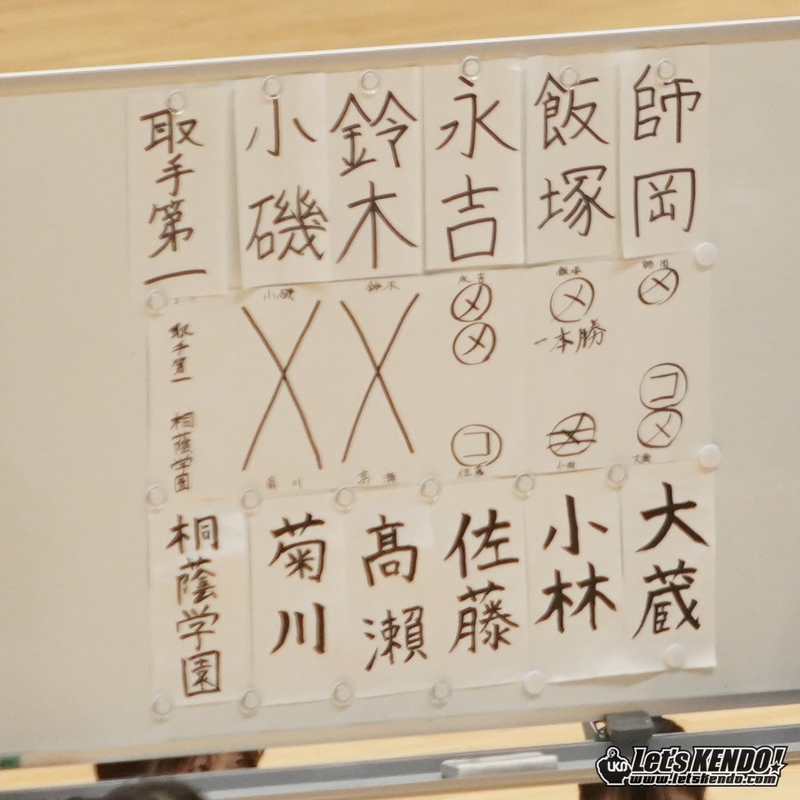 師岡
飯塚
永吉
鈴木
小磯
取手第一
師岡
メ
コ
メ
大蔵
飯塚
メ
一本勝
小林
永吉
メ
メ
コ
佐藤
鈴木
高瀬
小磯
菊川
取手第一
桐蔭学園
大蔵
小林
佐藤
髙瀨
菊川
桐蔭学園
LKD
Let's KENDO!
www.letskendo.com